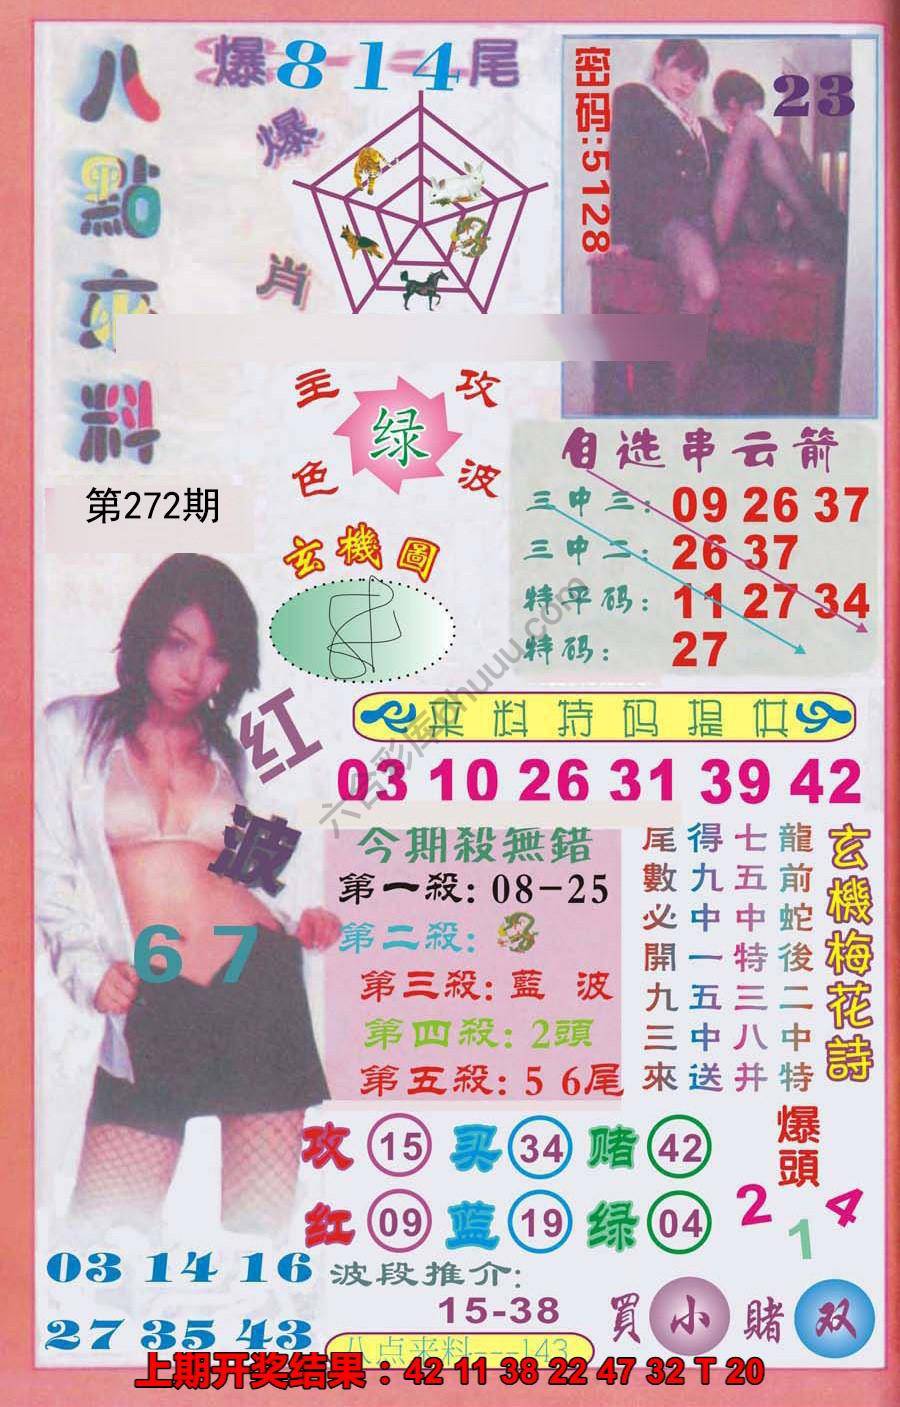 八點來料
爆8-1-4尾
爆肖
密码:5128
23
主攻
绿
色波
第272期
玄機圖
自选串云箭
三中三: 09 26 37
三中二: 26 37
特平码: 11 27 34
特码: 27
红波
67
来料特码提供
03 10 26 31 39 42
今期殺無錯
第一殺: 08-25
第二殺:
第三殺: 藍 波
第四殺: 2頭
第五殺: 5 6尾
玄機梅花詩
龍前蛇後二中特
七五中特三八并
得九中一五中送
尾數必開九三來
攻 15 买 34 赌 42
红 09 蓝 19 绿 04
爆頭
2 1 4
03 14 16
27 35 43
波段推介:
15-38
買 小 賭 双
八点来料---143
上期开奖结果：42 11 38 22 47 32 T 20
六合彩库
huuu.com